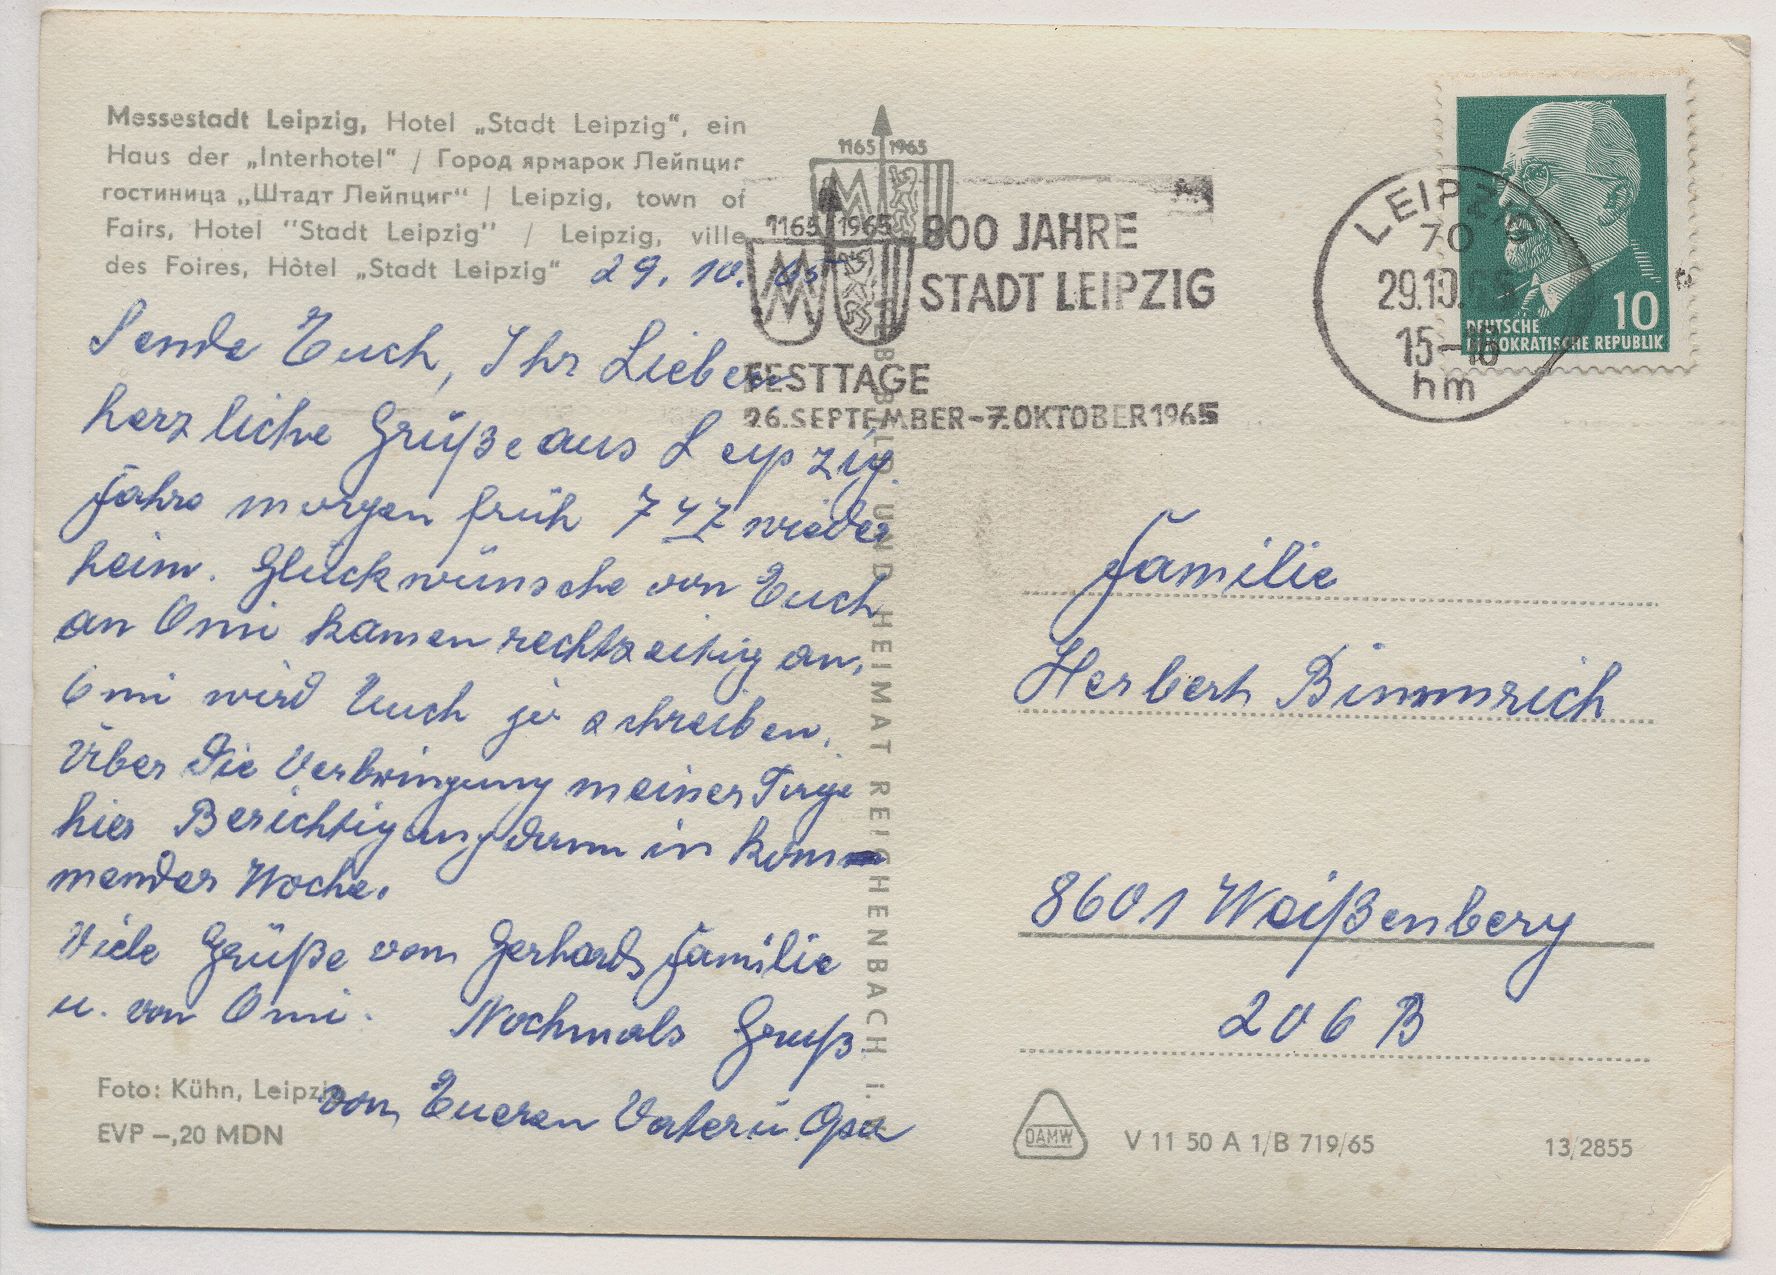 Messestadt Leipzig, Hotel „Stadt Leipzig“, ein
Haus der „Interhotel“ / Город ярмарок Лейпциг
гостиница „Штадт Лейпциг“ / Leipzig, town of
Fairs, Hotel "Stadt Leipzig" / Leipzig, ville
des Foires, Hôtel „Stadt Leipzig“
29. 10. 65
Sende Euch, Ihr Lieben
herzliche Grüße aus Leipzig.
fahre morgen früh 7 47 wieder
heim. Glückwünsche von Euch
an Omi kamen rechtzeitig an,
Omi wird Euch ja schreiben.
Über die Verbringung meiner Tage
hier Berichtigung dann in kom-
mender Woche.
Viele Grüße von Gerhards Familie
u. von Omi. Nochmals Gruß
von Eueren Vater u Opa
Foto: Kühn, Leipzig
EVP –,20 MDN
BILD UND HEIMAT REICHENBACH I.
1165 1965
1165 1965
800 JAHRE
STADT LEIPZIG
FESTTAGE
26. SEPTEMBER–7. OKTOBER 1965
LEIPZIG
70
29.10.65
15–16
hm
10
DEUTSCHE
DEMOKRATISCHE REPUBLIK
Familie
Herbert Bimmrich
8601 Weißenberg
206 B
DAMW
V 11 50 A 1/B 719/65
13/2855